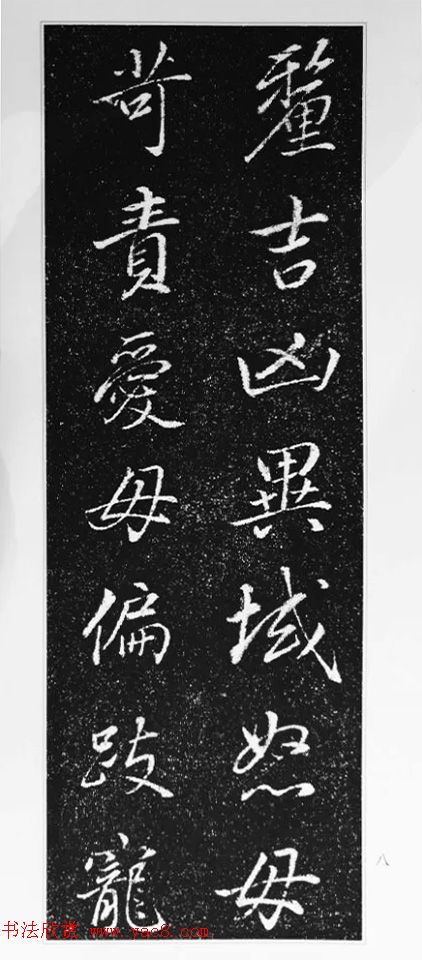 釐吉凶異域怒毋
苛責愛毋偏跛寵
八
书法欣赏 www.yac8.com